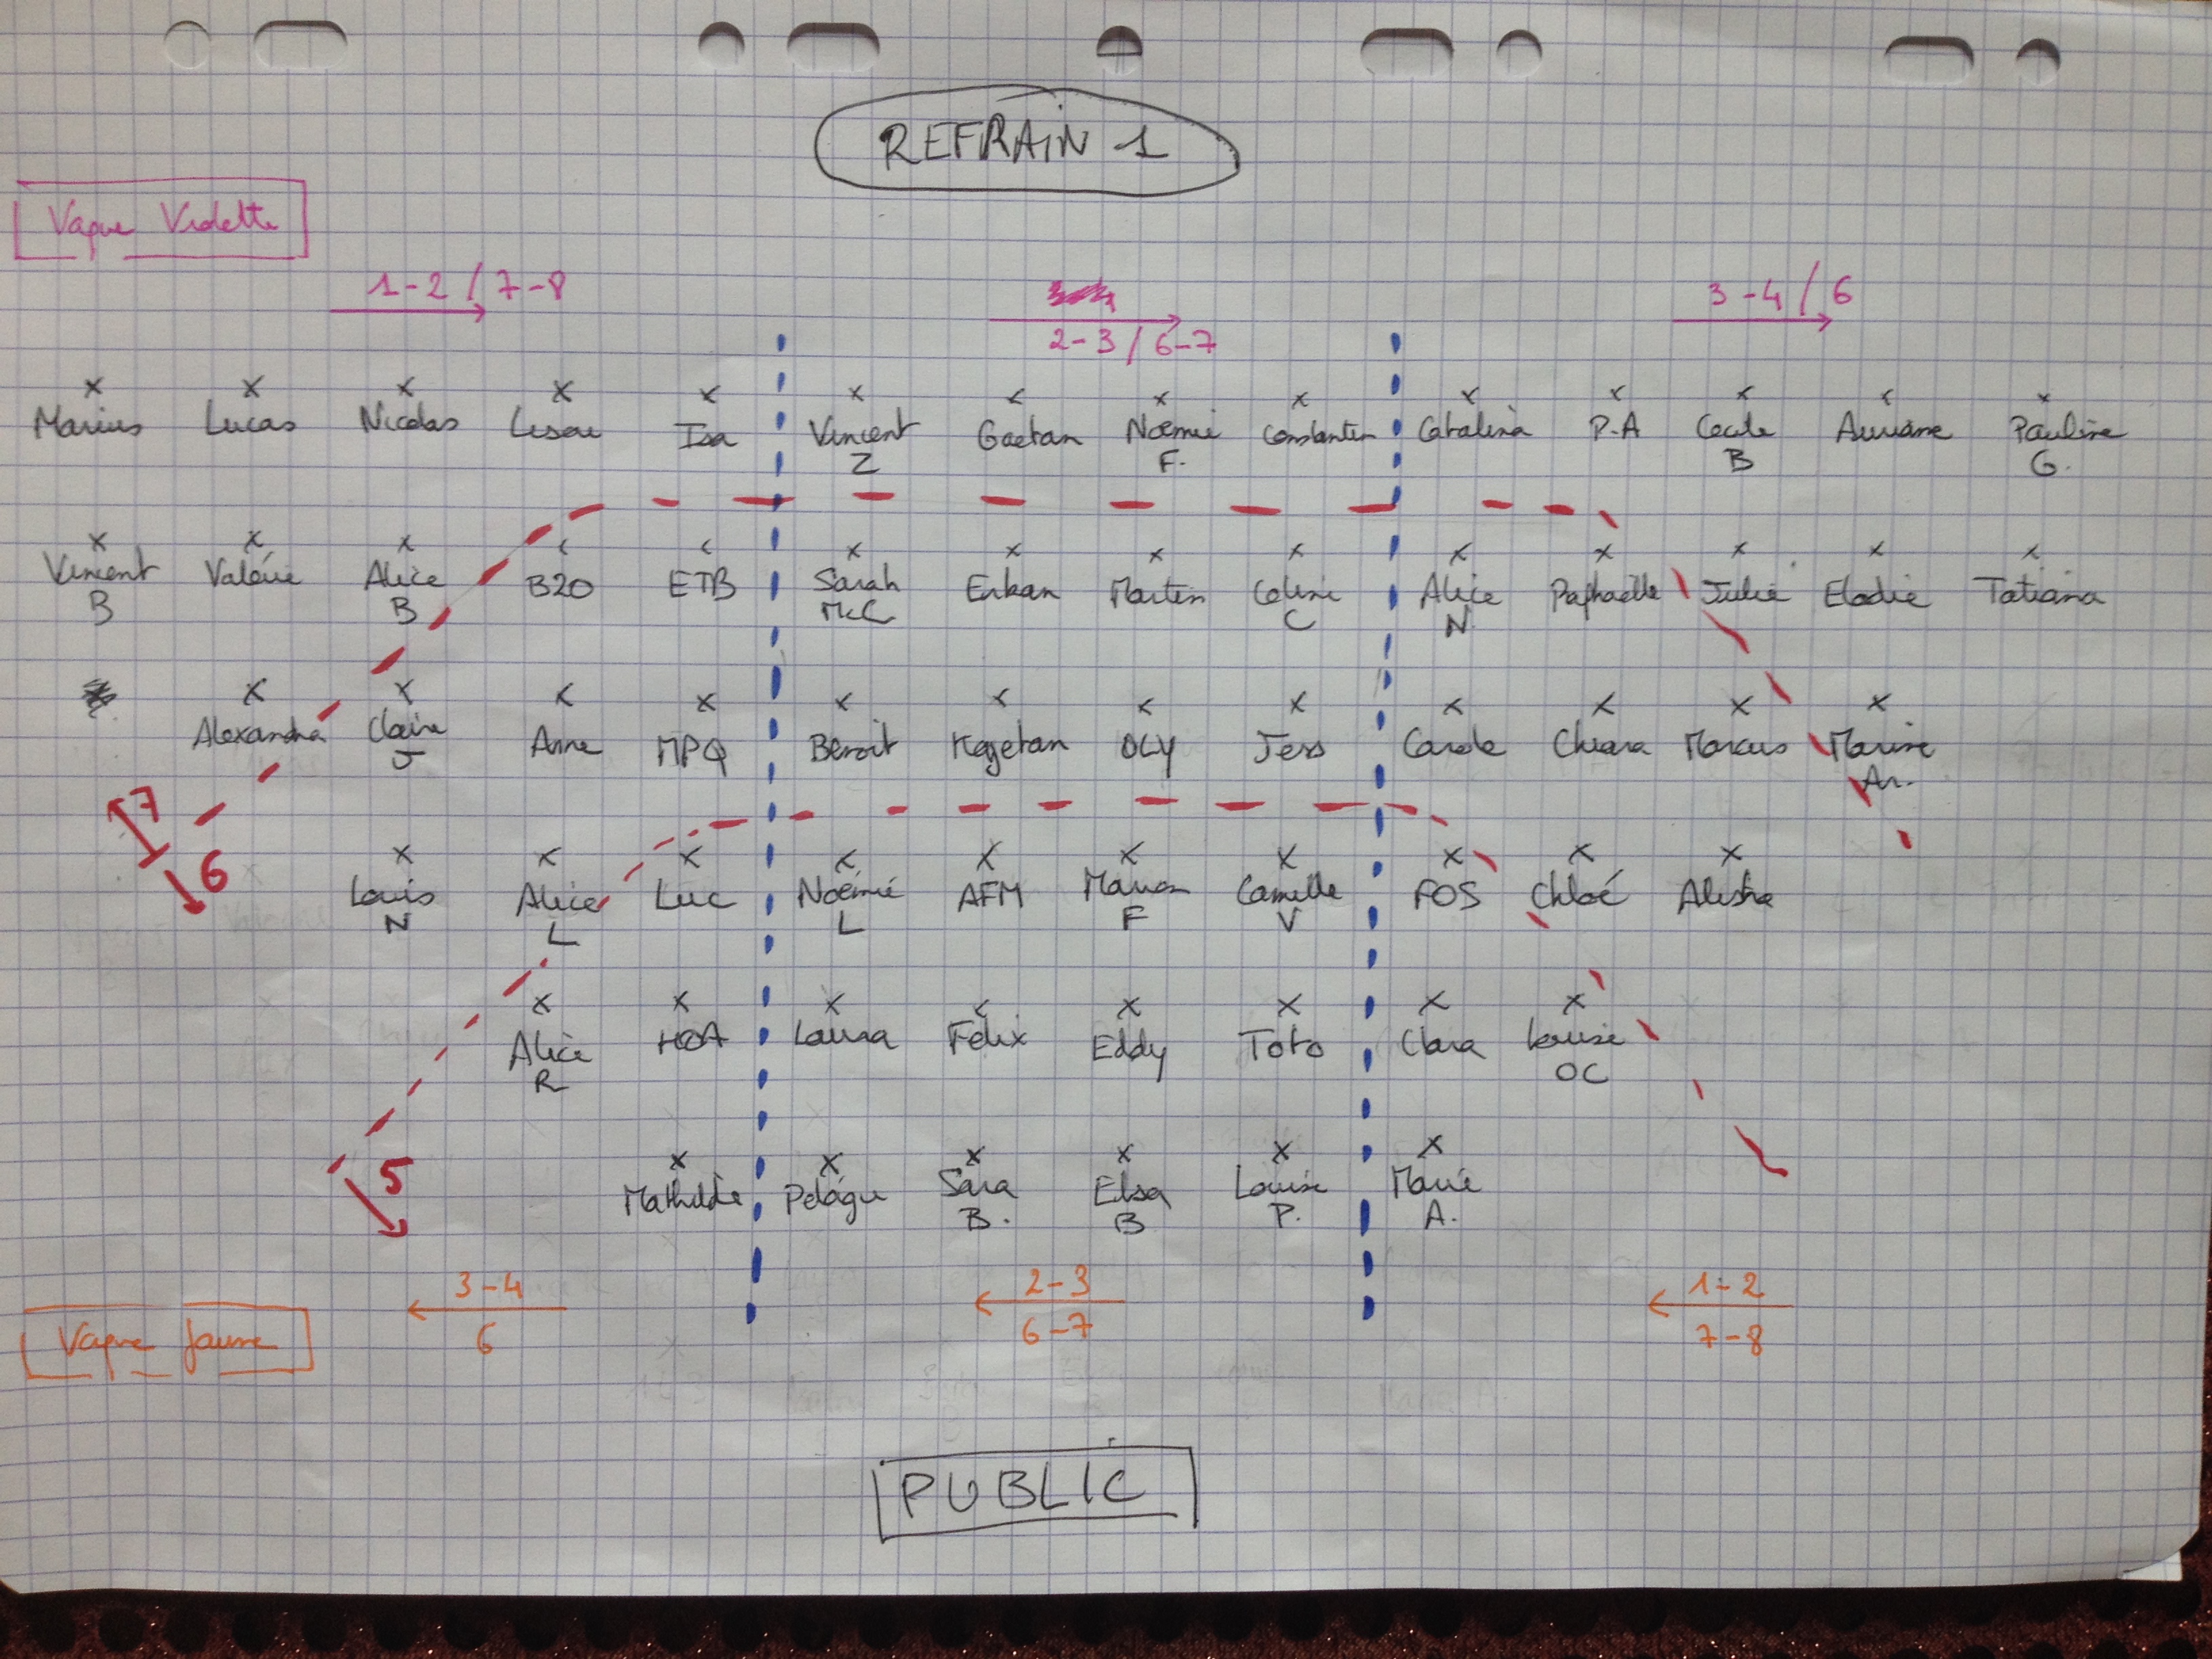 REFRAIN 1
Vague Violette
1-2 / 7-8
2-3 / 6-7
3-4 / 6
Marius Lucas Nicolas Isa Vincent Z Gaetan Noémie F. Constantin Catalina P.A Cécile B Auriane Pauline G.
Vincent B Valérie Alice B B20 ETB Sarah McC Erkan Martin Céline C Alice N. Raphaëlle Julie Elodie Tatiana
Alexandra Claire J Anne MPQ Benoit Kajetan OLY Jess Carole Chiara Marcus Marine Ar.
7
6
Louis N Alice L Luc Noémie L AFM Manon F Camille V FOS Chloé Alisha
Alice R HOA Laura Félix Eddy Toto Clara Louise OC
5
Mathilde Pélagie Sara B. Elsa B Louise P. Marie A.
3-4
6
2-3
6-7
1-2
7-8
Vague Jaune
PUBLIC